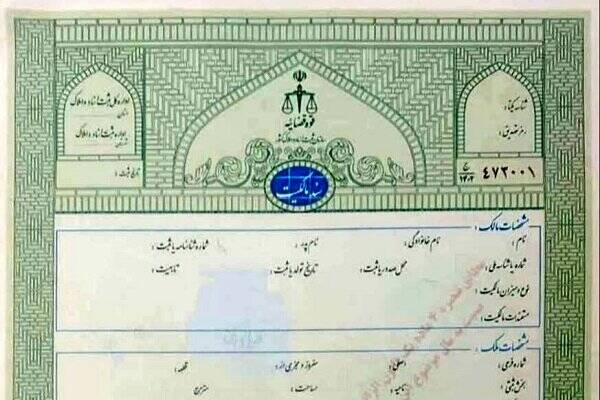 قوه قضائیه
سازمان ثبت اسناد و املاک کشور
اداره کل ثبت اسناد و املاک
استان:
اداره ثبت اسناد و املاک
شهرستان:
تاریخ ثبت:
شناسه یکتا:
رمز تصدیق:
۴۷۳۰۰۱
سند مالکیت
مشخصات مالک:
نام: نام خانوادگی: نام پدر: شماره شناسنامه یا ثبت:
شماره یا شناسه ملی: محل صدور یا ثبت: تاریخ تولد یا ثبت: تابعیت:
نوع و میزان مالکیت:
مستندات مالکیت:
مشخصات ملک:
شماره فرعی: اصلی: مفروز و مجزی از: قطعه:
بخش ثبتی: ناحیه: مساحت: مترمربع